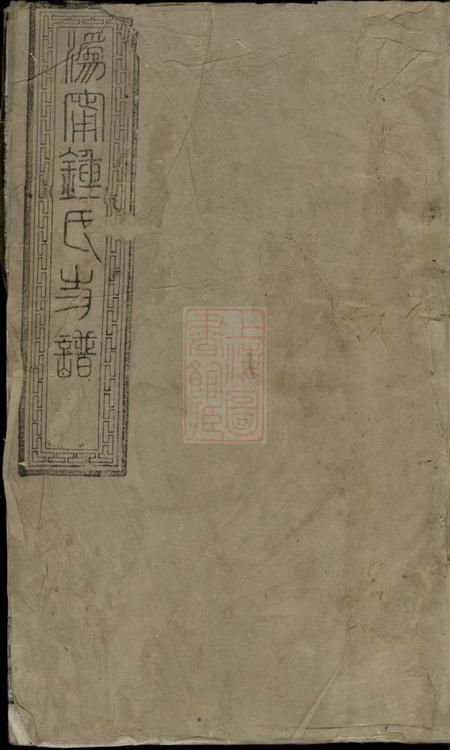 溈甯鍾氏支譜
上海圖
書館藏